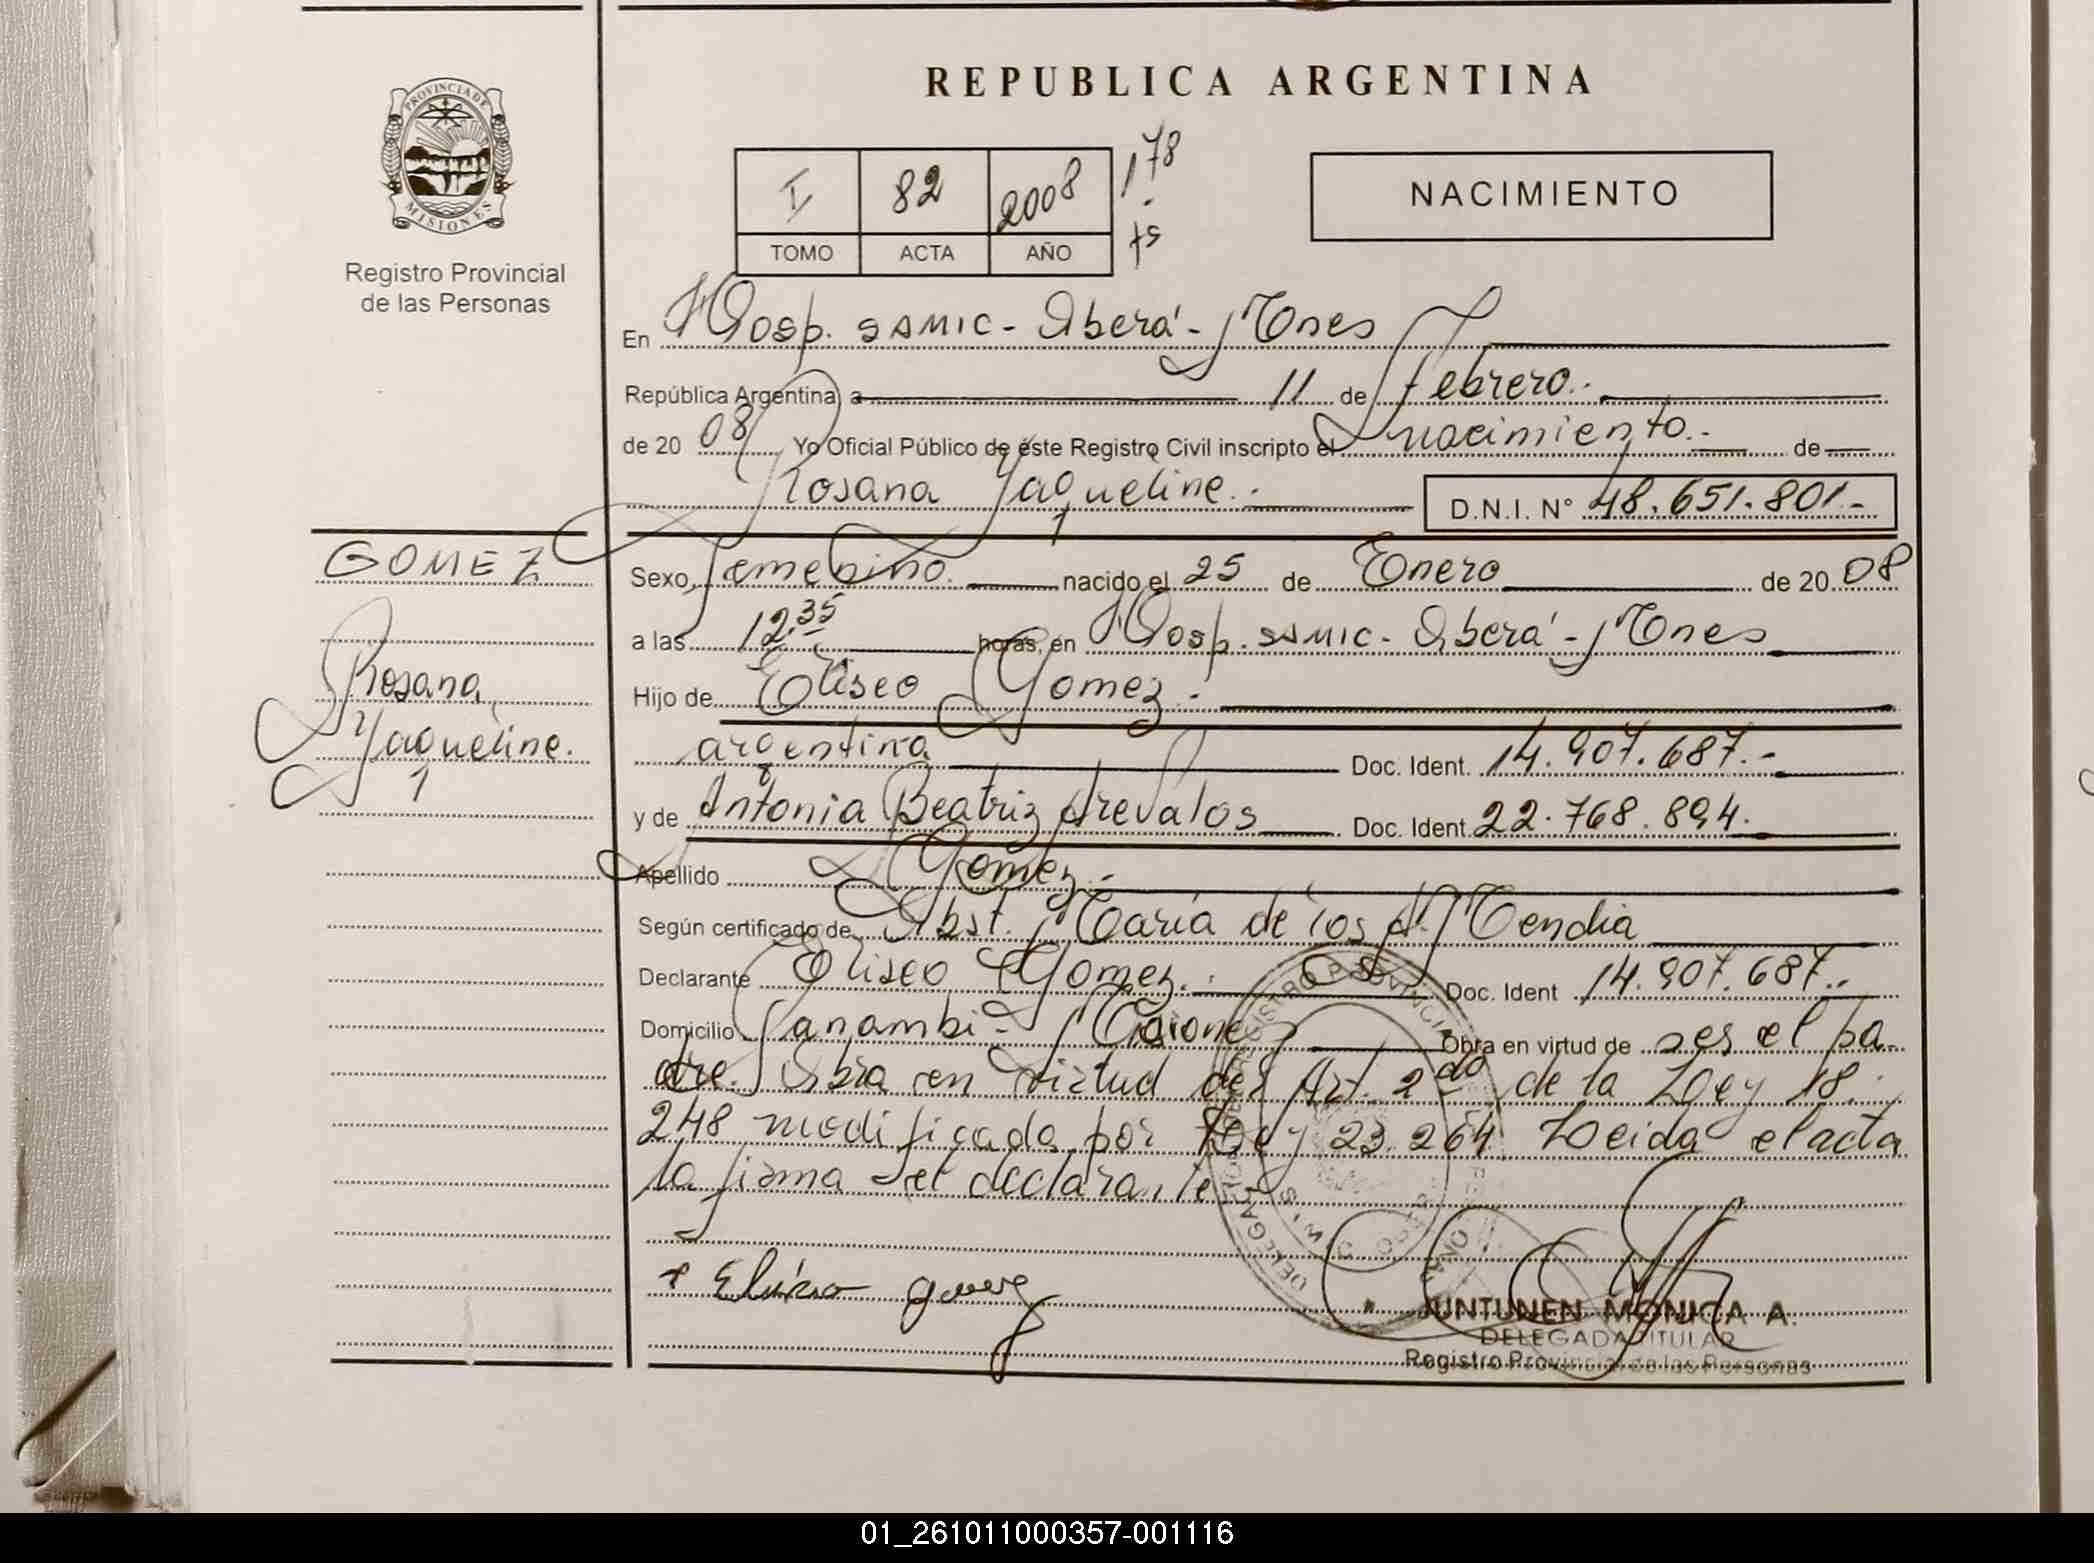 REPUBLICA ARGENTINA
PROVINCIA DE
MISIONES
Registro Provincial
de las Personas
I 82 2008 178
TOMO ACTA AÑO
NACIMIENTO
En Hosp. SAMIC - Oberá - Mnes
República Argentina, a 11 de Febrero.-
de 20 08 Yo Oficial Público de este Registro Civil inscripto el nacimiento.- de
Rosana Yaqueline.- D.N.I. N° 48.651.801.-
GOMEZ
Rosana
Yaqueline.
1
Sexo Femenino nacido el 25 de Enero de 20 08
a las 12.35 horas, en Hosp. SAMIC - Oberá - Mnes
Hijo de Eliseo Gomez.-
argentina Doc. Ident. 14.907.687.-
y de Antonia Beatriz Arevalos Doc. Ident. 22.768.894.
Apellido Gomez.-
Según certificado de Obst. María de los A. Mendia
Declarante Eliseo Gomez.- Doc. Ident 14.907.687.-
Domicilio Panambí - Misiones Obra en virtud de ses el pa-
dre. Obra en virtud del Art. 2do de la Ley 18.
248 modificada por Ley 23.264 Leida el acta
la firma el declarante
JUNTUNEN MONICA A.
DELEGADA TITULAR
Registro Provincial de las Personas
01_261011000357-001116